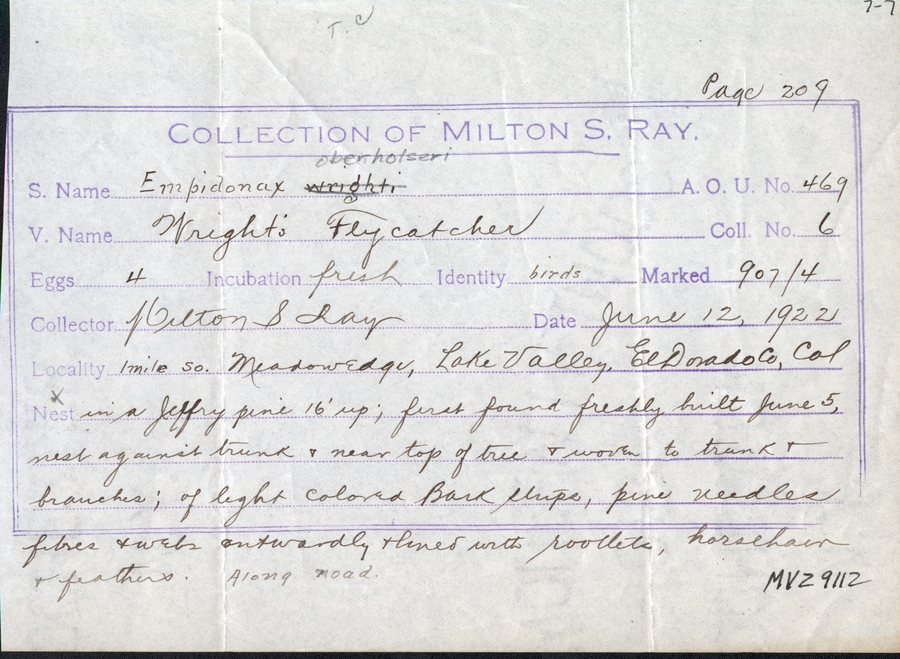 7-7
T. C
Page 209
COLLECTION OF MILTON S. RAY.
oberholseri
S. Name Empidonax wrighti A. O. U. No. 469
V. Name Wright's Flycatcher Coll. No. 6
Eggs 4 Incubation fresh Identity birds Marked 907/4
Collector Milton S Ray Date June 12, 1922
Locality 1 mile so. Meadowedge, Lake Valley, El Dorado Co, Cal
x
Nest in a Jeffry pine 16' up; first found freshly built June 5,
nest against trunk & near top of tree & woven to trunk &
branches; of light colored Bark strips, pine needles
fibres & webs outwardly & lined with rootlets, horsehair
& feathers. Along road.
MVZ 9112